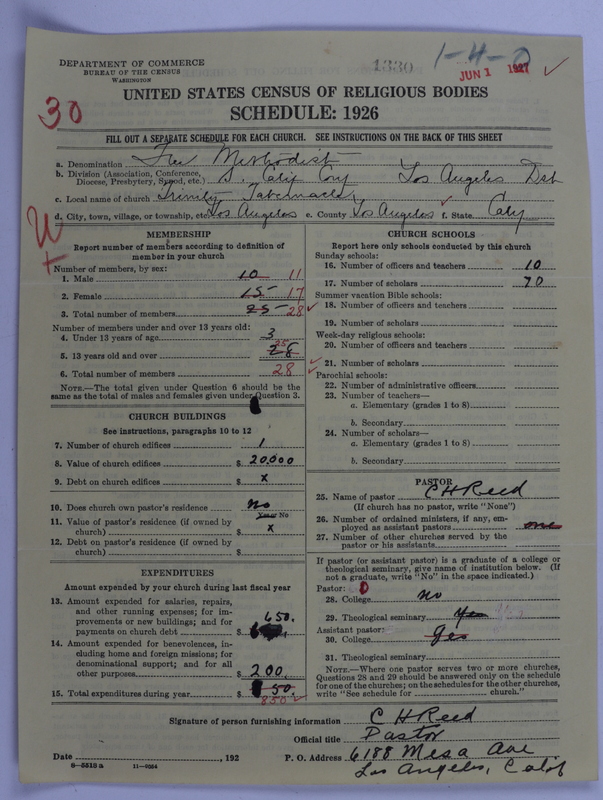 DEPARTMENT OF COMMERCE
BUREAU OF THE CENSUS
WASHINGTON
1330
1-4-0
JUN 1 1927
UNITED STATES CENSUS OF RELIGIOUS BODIES
SCHEDULE: 1926
30
FILL OUT A SEPARATE SCHEDULE FOR EACH CHURCH. SEE INSTRUCTIONS ON THE BACK OF THIS SHEET
a. Denomination Free Methodist
b. Division (Association, Conference, Diocese, Presbytery, Synod, etc.) S. Calif Conf Los Angeles Dst
c. Local name of church Trinity Tabernacle
d. City, town, village, or township, etc. Los Angeles e. County Los Angeles f. State Caly
W
MEMBERSHIP
Report number of members according to definition of
member in your church
Number of members, by sex:
1. Male 10 11
2. Female 15 17
3. Total number of members 25 28
Number of members under and over 13 years old:
4. Under 13 years of age 3
5. 13 years old and over 28 25
6. Total number of members 28
NOTE.—The total given under Question 6 should be
same as the total of males and females given under Question 3.
CHURCH BUILDINGS
See instructions, paragraphs 10 to 12
7. Number of church edifices 1
8. Value of church edifices $ 20,000
9. Debt on church edifices $ x
10. Does church own pastor's residence No
Yes or No
11. Value of pastor's residence (if owned by
church) $ x
12. Debt on pastor's residence (if owned by
church) $
EXPENDITURES
Amount expended by your church during last fiscal year
13. Amount expended for salaries, repairs,
and other running expenses; for im-
provements or new buildings; and for
payments on church debt $ 650.
14. Amount expended for benevolences, in-
cluding home and foreign missions; for
denominational support; and for all
other purposes $ 200.
15. Total expenditures during year $ 50.
850
CHURCH SCHOOLS
Report here only schools conducted by this church
Sunday schools:
16. Number of officers and teachers 10
17. Number of scholars 70
Summer vacation Bible schools:
18. Number of officers and teachers
19. Number of scholars
Week-day religious schools:
20. Number of officers and teachers
21. Number of scholars
Parochial schools:
22. Number of administrative officers
23. Number of teachers—
a. Elementary (grades 1 to 8)
b. Secondary
24. Number of scholars—
a. Elementary (grades 1 to 8)
b. Secondary
PASTOR
25. Name of pastor C H Reed
(If church has no pastor, write "None")
26. Number of ordained ministers, if any, em-
ployed as assistant pastors one
27. Number of other churches served by the
pastor or his assistants
If pastor (or assistant pastor) is a graduate of a college or
theological seminary, give name of institution below. (If
not a graduate, write "No" in the space indicated.)
Pastor:
28. College no
29. Theological seminary yes
Assistant pastor:
30. College yes
31. Theological seminary
NOTE.—Where one pastor serves two or more churches,
Questions 28 and 29 should be answered only on the schedule
for one of the churches; on the schedules for the other churches,
write "See schedule for church."
Signature of person furnishing information C H Reed
Official title Pastor
Date , 192 P. O. Address 6188 Mesa Ave
8-5518 a 11-9264 Los Angeles, Calif